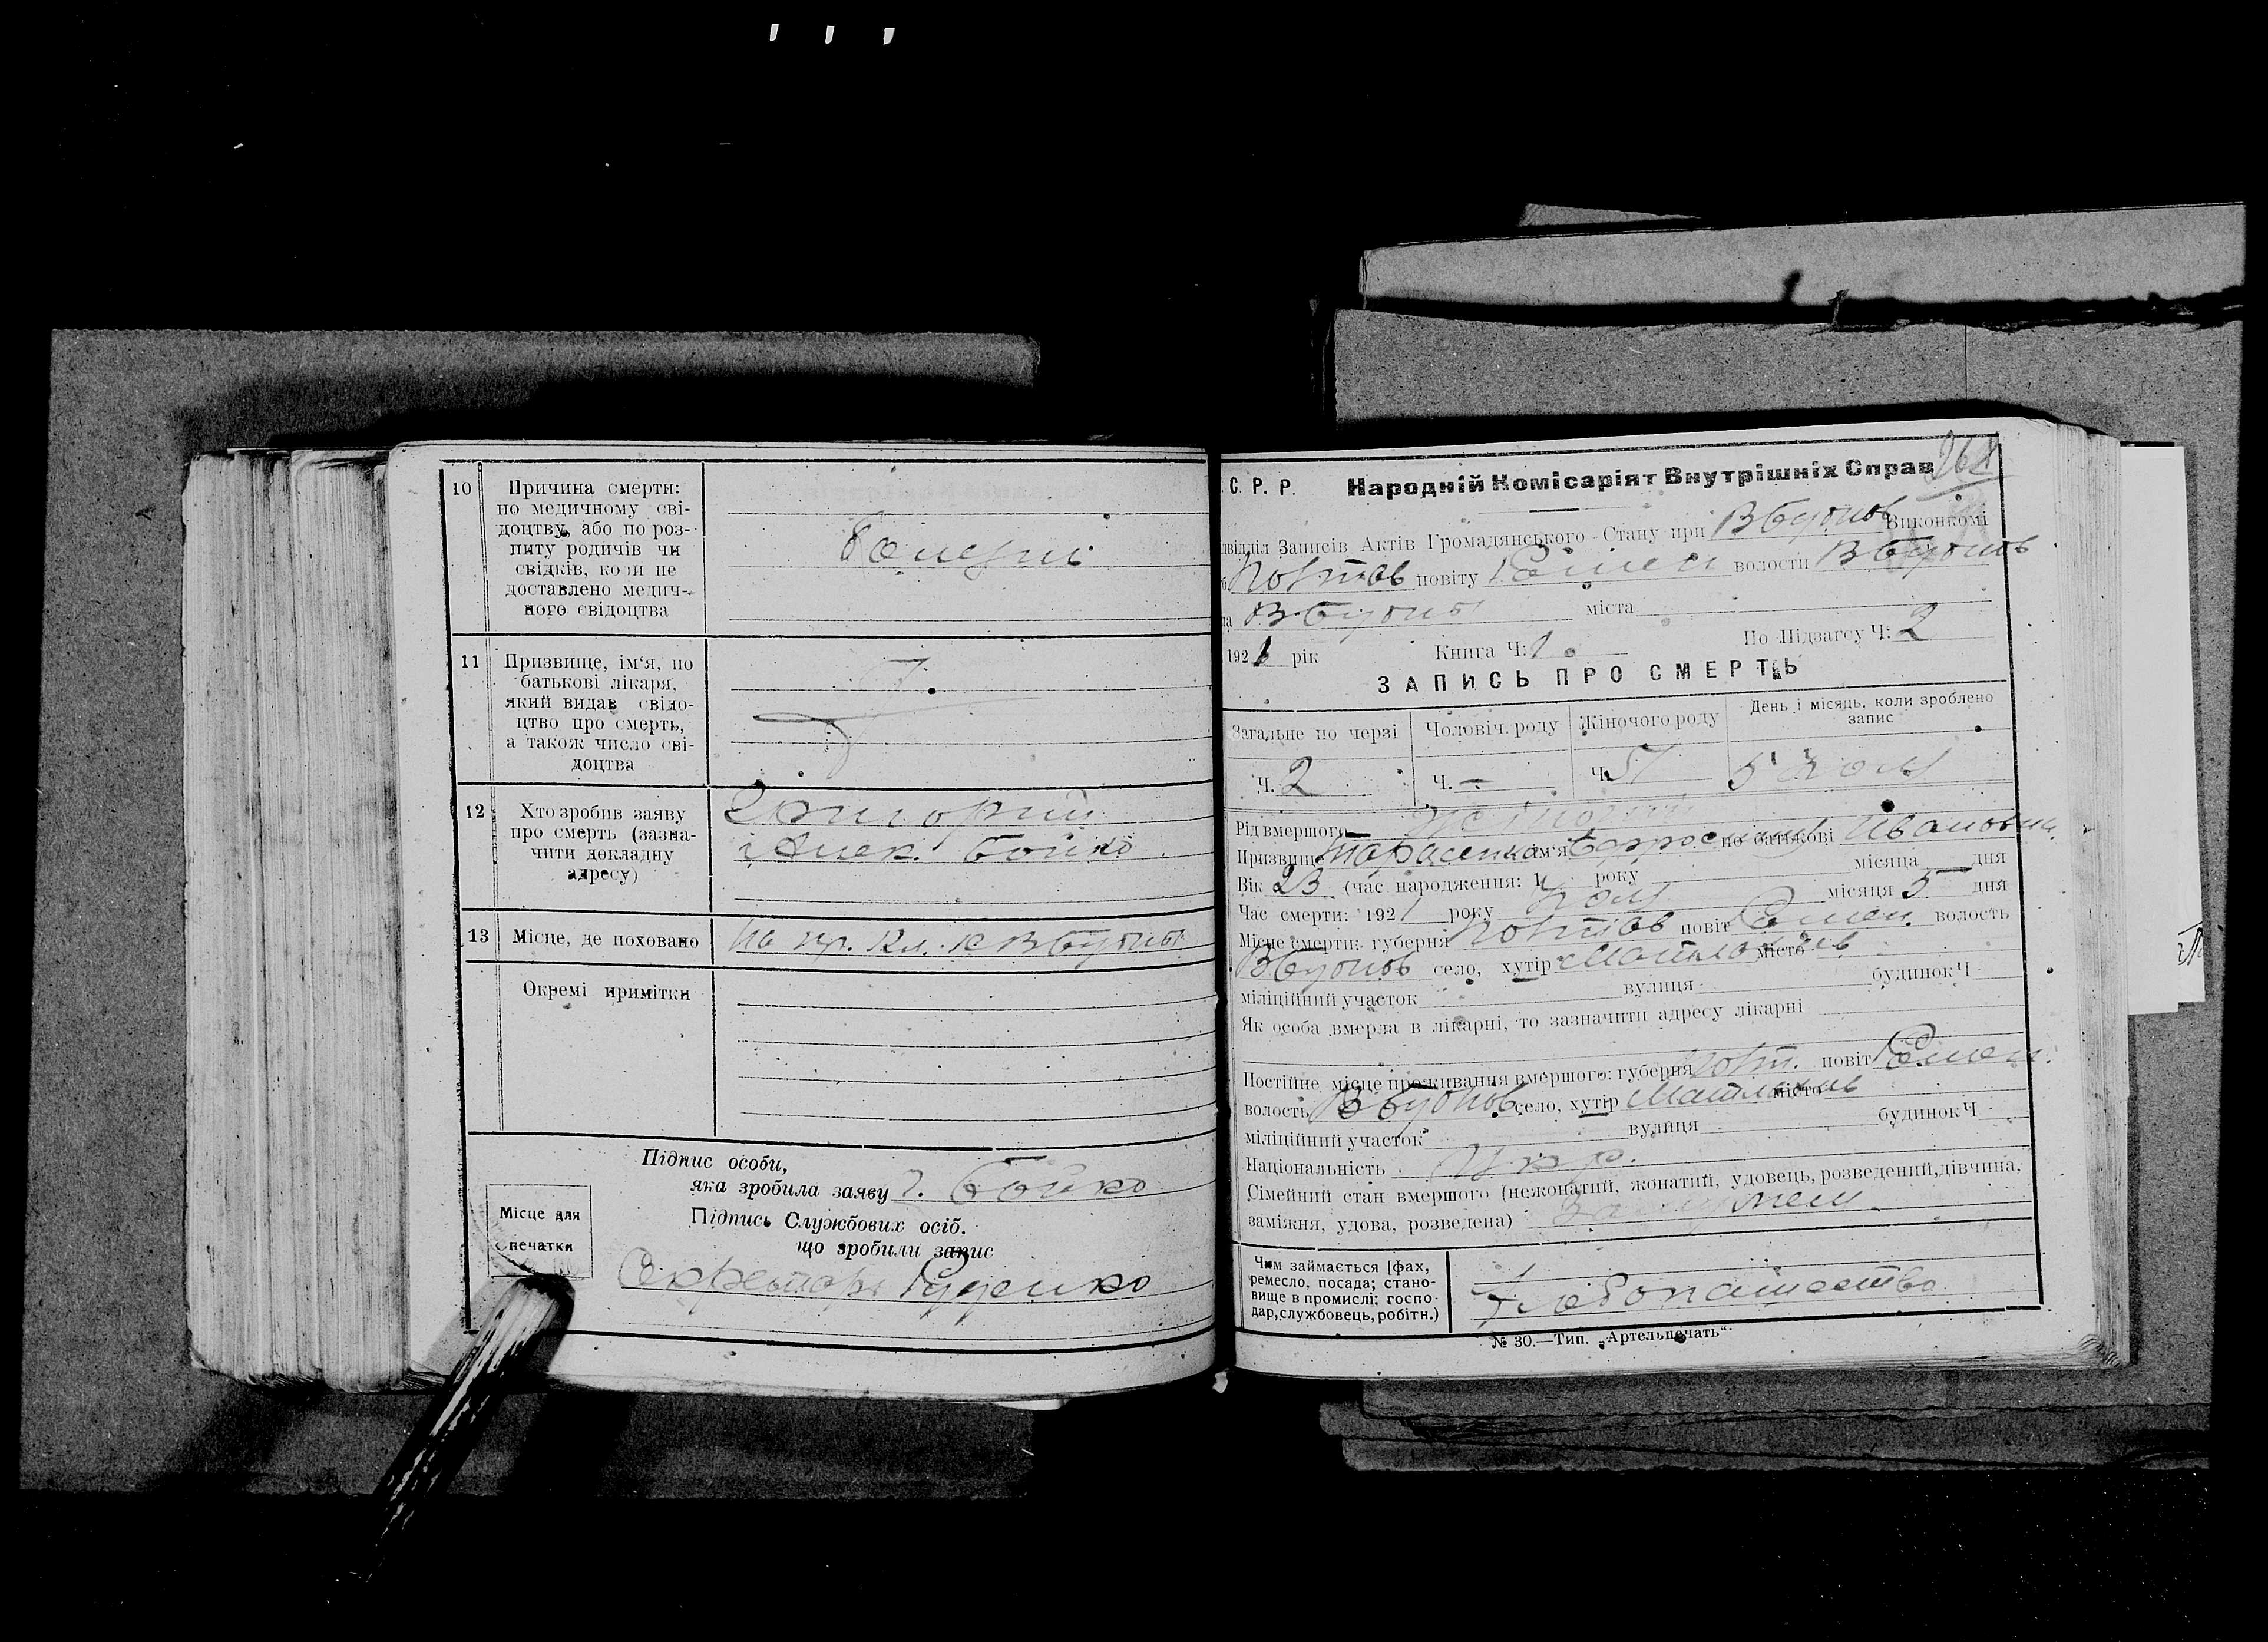 10
Причина смерти:
по медичному сві-
доцтву, або по роз-
питу родичів чи
свідків, коли не
доставлено медич-
ного свідоцтва
11
Призвище, ім'я, по
батькові лікаря,
який видав свідо-
цтво про смерть,
а також число сві-
доцтва
12
Хто зробив заяву
про смерть (зазна-
чити докладну
адресу)
Григорий
Бойко
13
Місце, де поховано
Окремі примітки
Підпис особи,
яка зробила заяву Г. Бойко
Підпись Службових осіб.
що зробили запис
Місце для
печатки
Секретарь Руденко
268
С. Р. Р. Народній Комісаріят Внутрішніх Справ
Записів Актів Громадянського Стану при Виконкомі
Полтав повіту Ромен волости
міста
1921 рік Книга Ч: 1 По Підзагсу Ч: 2
ЗАПИСЬ ПРО СМЕРТЬ
Загальне по черзі
Чоловіч. роду
Жіночого роду
День і місяць, коли зроблено
запис
Ч. 2
Ч. —
Ч.
Рід вмершого Жіночий
Призвище Тарасенко ім'я по батькові Ивановн.
Вік 23 (час народження: 1 року місяца дня
Час смерти: 1921 року місяця 5 дня
Місце смерти: губерня Полтав повіт Ромен. волость
село, хутір місто
міліційний участок вулиця будинок Ч
Як особа вмерла в лікарні, то зазначити адресу лікарні
Постійне місце проживання вмершого: губерня Полт. повіт Ромен.
волость село, хутір місто
міліційний участок вулиця будинок Ч
Національність Укр.
Сімейний стан вмершого (нежонатий, жонатий, удовець, розведений, дівчина,
заміжня, удова, розведена) Замужем
Чим займається [фах,
ремесло, посада; стано-
вище в промислі: госпо-
дар, службовець, робітн.)
Хлебопашество
№ 30.—Тип. „Артельпечать“